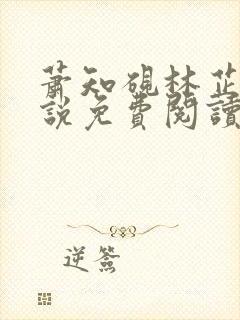 蕭知硯林芷
說免費閱讀
逆簽